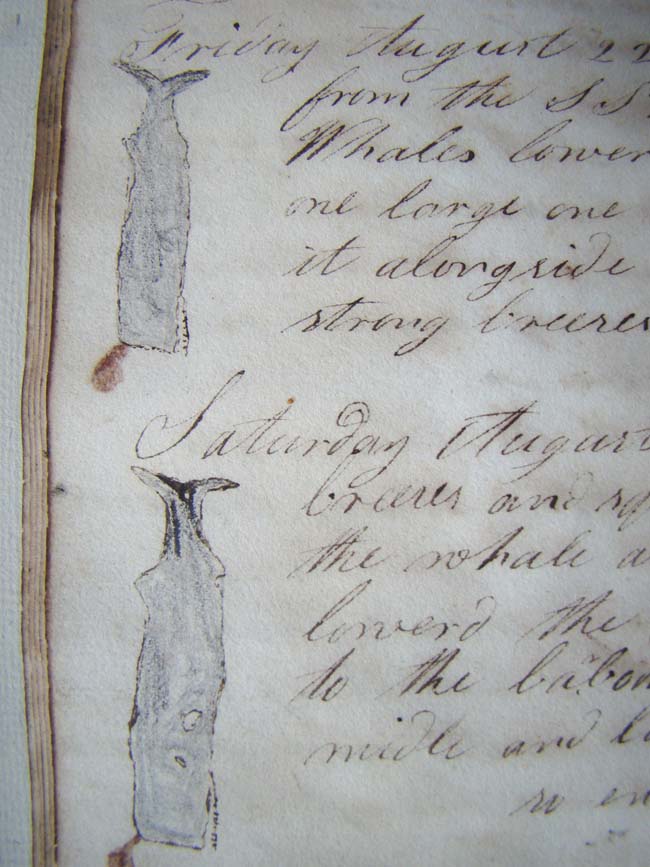 Friday August 22
from the SS
Whales lower
one large one
it alongside
strong breezes
Saturday August
breezes and sq
the whale a
lowerd the
to the
midle and l
so en